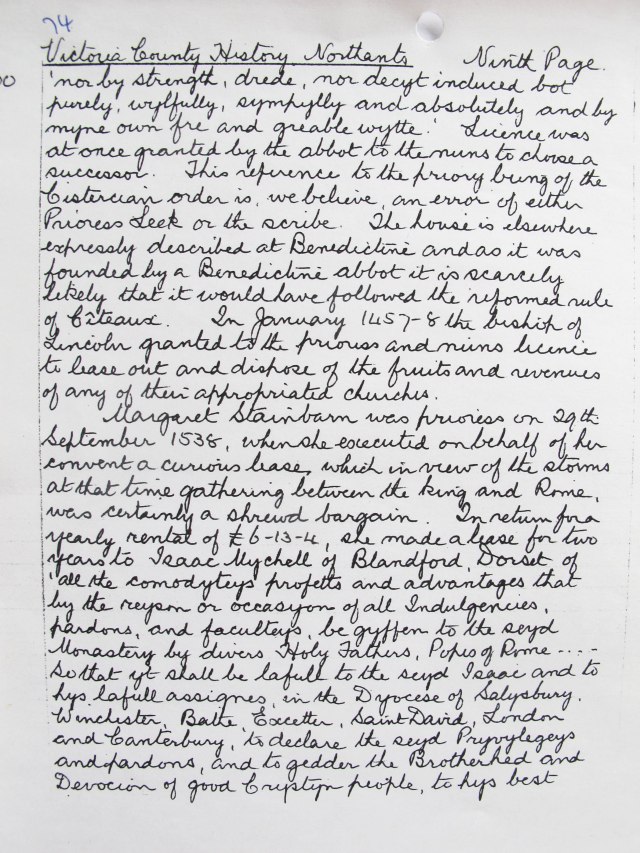 74
Victoria County History. Northants Ninth Page.
'nor by strength, drede, nor decyt induced bot
purely, wylfully, sympylly and absolutely and by
myne own fre and greable wytte.' Licence was
at once granted by the abbot to the nuns to choose a
successor. This reference to the priory being of the
Cistercian order is, we believe, an error of either
Prioress Leek or the scribe. The house is elsewhere
expressly described at Benedictine and as it was
founded by a Benedictine abbot it is scarcely
likely that it would have followed the reformed rule
of Cîteaux. In January 1457-8 the bishop of
Lincoln granted to the prioress and nuns licence
to lease out and dispose of the fruits and revenues
of any of their appropriated churches.
Margaret Stainbarn was prioress on 29th
September 1538, when she executed on behalf of her
convent a curious lease, which in view of the storms
at that time gathering between the king and Rome,
was certainly a shrewd bargain. In return for a
yearly rental of £6-13-4, she made a lease for two
years to Isaac Mychell of Blandford, Dorset of
'all the comodyteys profetts and advantages that
by the reyson or occasyon of all Indulgencies,
pardons, and faculteys, be gyffen to the seyd
Monastery by divers Holy Fathers, Popes of Rome ----
so that yt shall be lafull to the seyd Isaac and to
hys lafull assignes, in the Dyocese of Salysbury.
Winchester, Bathe, Excetter, Saint David, London
and Canterbury, to declare the seyd Pryvylegeys
and pardons, and to gedder the Brotherhed and
Devocion of good Crystyn people, to hys best